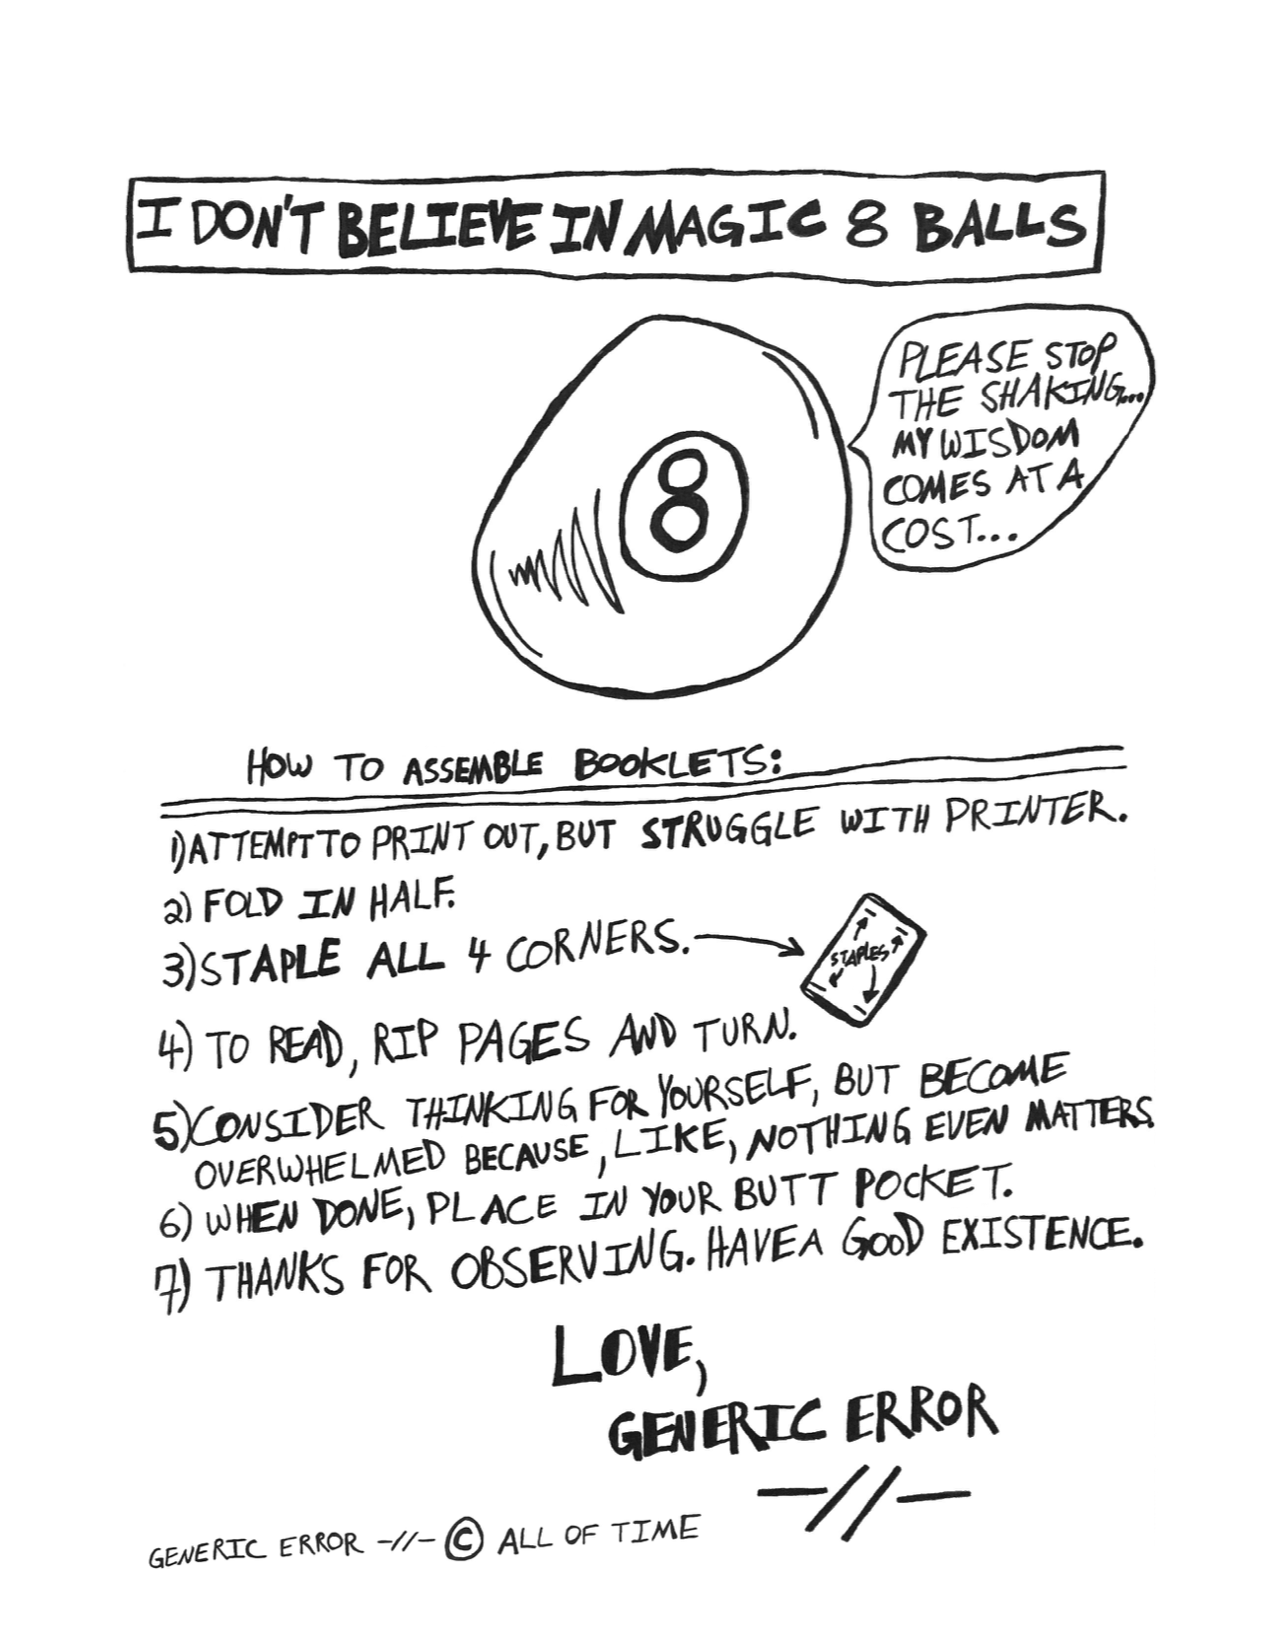 I DON'T BELIEVE IN MAGIC 8 BALLS
PLEASE STOP
THE SHAKING...
MY WISDOM
COMES AT A
COST...
8
HOW TO ASSEMBLE BOOKLETS:
1) ATTEMPT TO PRINT OUT, BUT STRUGGLE WITH PRINTER.
2) FOLD IN HALF.
3) STAPLE ALL 4 CORNERS.
STAPLES
4) TO READ, RIP PAGES AND TURN.
5) CONSIDER THINKING FOR YOURSELF, BUT BECOME
OVERWHELMED BECAUSE, LIKE, NOTHING EVEN MATTERS.
6) WHEN DONE, PLACE IN YOUR BUTT POCKET.
7) THANKS FOR OBSERVING. HAVE A GOOD EXISTENCE.
LOVE,
GENERIC ERROR
—//—
GENERIC ERROR -//- © ALL OF TIME